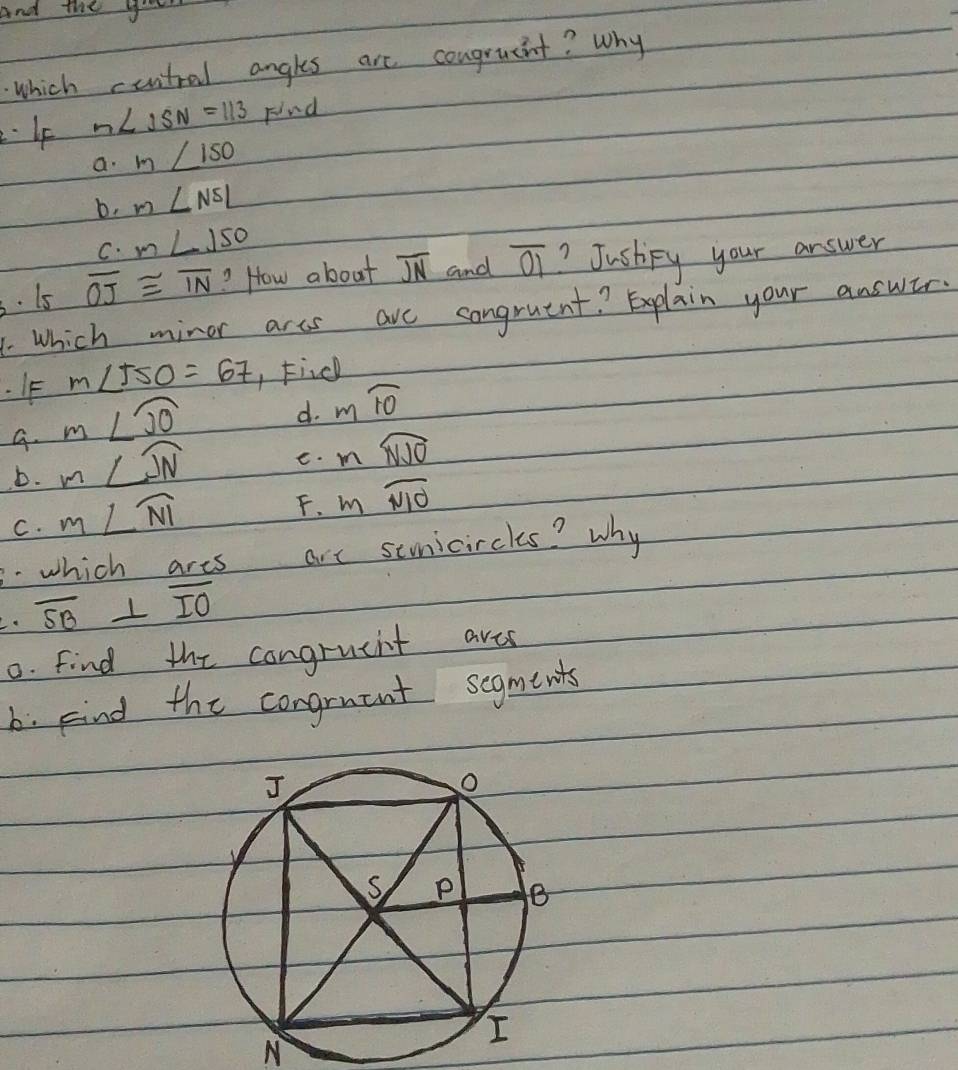 and the
.Which central angles are congruent? Why
2. IF m∠JSN = 113 Find
a. m ∠ISO
b. m ∠NSI
c. m ∠JSO
3. Is OJ ≅ IN? How about JN and OI? Justify your answer
4. Which minor arcs are congruent? Explain your answer.
. IF m∠JSO = 67, Find
a. m ∠JO d. m IO
b. m ∠JN e. m NJO
c. m ∠NI F. m NIO
. which arcs are semicircles? Why
. SB ⊥ IO
a. Find the congruent arcs
b. Find the congruent segments
J O
S P B
N I